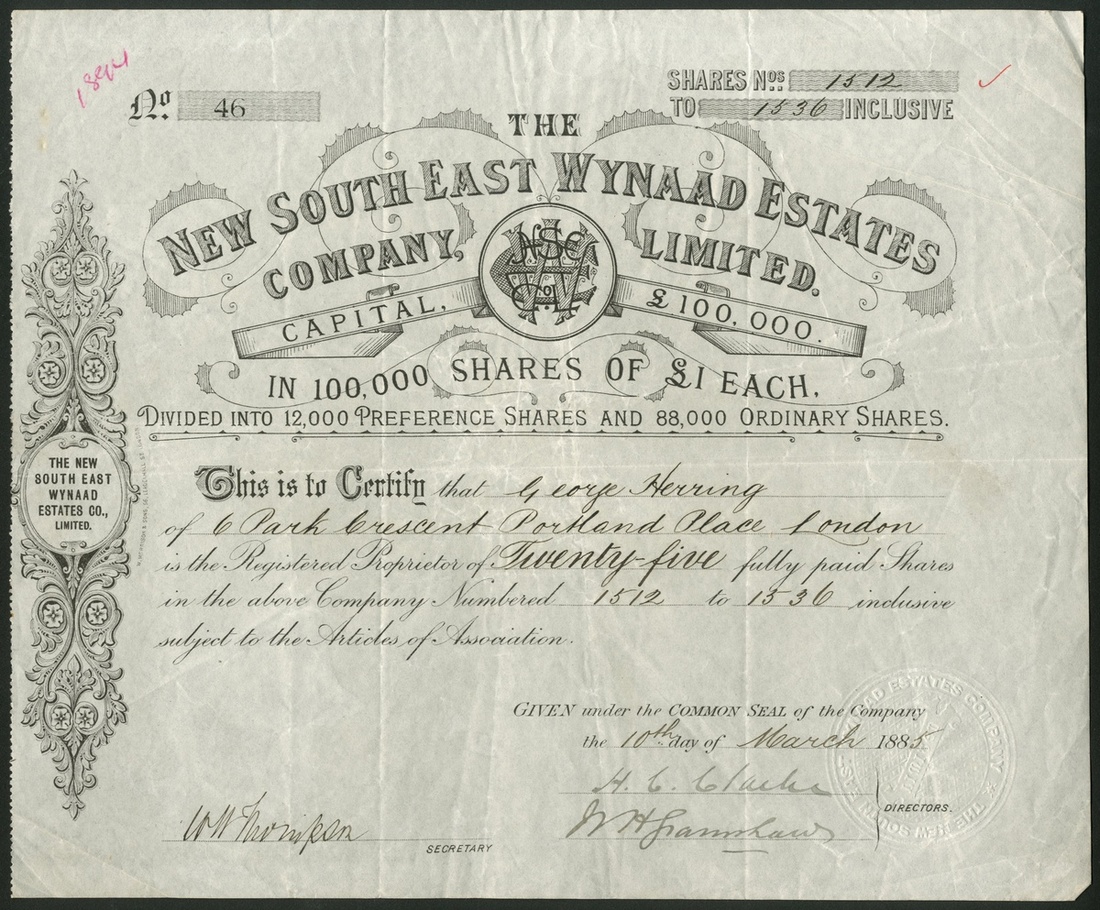 1894
No. 46
SHARES Nos. 1512
TO 1536 INCLUSIVE
THE
NEW SOUTH EAST WYNAAD ESTATES
COMPANY, LIMITED.
NSEWE Co. L
CAPITAL, £100,000.
IN 100,000 SHARES OF £1 EACH,
DIVIDED INTO 12,000 PREFERENCE SHARES AND 88,000 ORDINARY SHARES.
THE NEW
SOUTH EAST
WYNAAD
ESTATES CO.,
LIMITED.
This is to Certify that George Herring
of 6 Park Crescent Portland Place London
is the Registered Proprietor of Twenty-five fully paid Shares
in the above Company Numbered 1512 to 1536 inclusive
subject to the Articles of Association.
GIVEN under the COMMON SEAL of the Company
the 10th day of March 1885
H. C. Clarke
DIRECTORS.
W W Thompson
SECRETARY
THE NEW SOUTH EAST WYNAAD ESTATES COMPANY